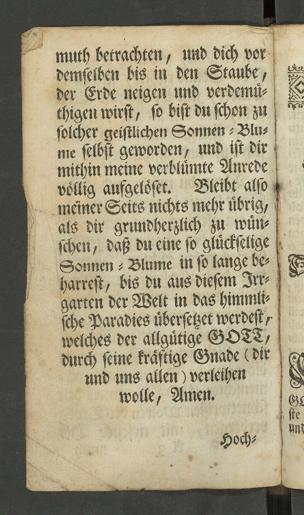 muth betrachten, und dich vor
demselben bis in den Staube,
der Erde neigen und verdemü-
thigen wirst, so bist du schon zu
solcher geistlichen Sonnen-Blu-
me selbst geworden, und ist dir
mithin meine verblümte Anrede
völlig aufgelöset. Bleibt also
meiner Seits nichts mehr übrig,
als dir grundherzlich zu wün-
schen, daß du eine so glückselige
Sonnen-Blume in so lange be-
harrest, bis du aus diesem Irr-
garten der Welt in das himmli-
sche Paradies übersetzet werdest,
welches der allgütige GOTT,
durch seine kräftige Gnade (dir
und uns allen) verleihen
wolle, Amen.
Hoch-